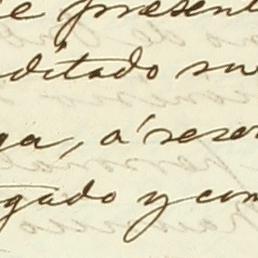 e present
ditado su
ga, á reser
gado y com